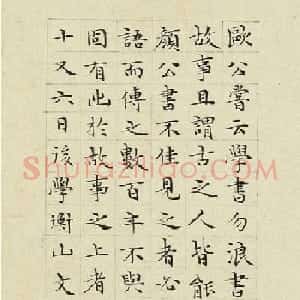 歐公嘗云學書勿浪書
故事且謂古之人皆能
顏公書不佳見之者必
語而傳之數百年不與
固有此於故事之上者
十又六日後學衡山文
Shufaziliao.com